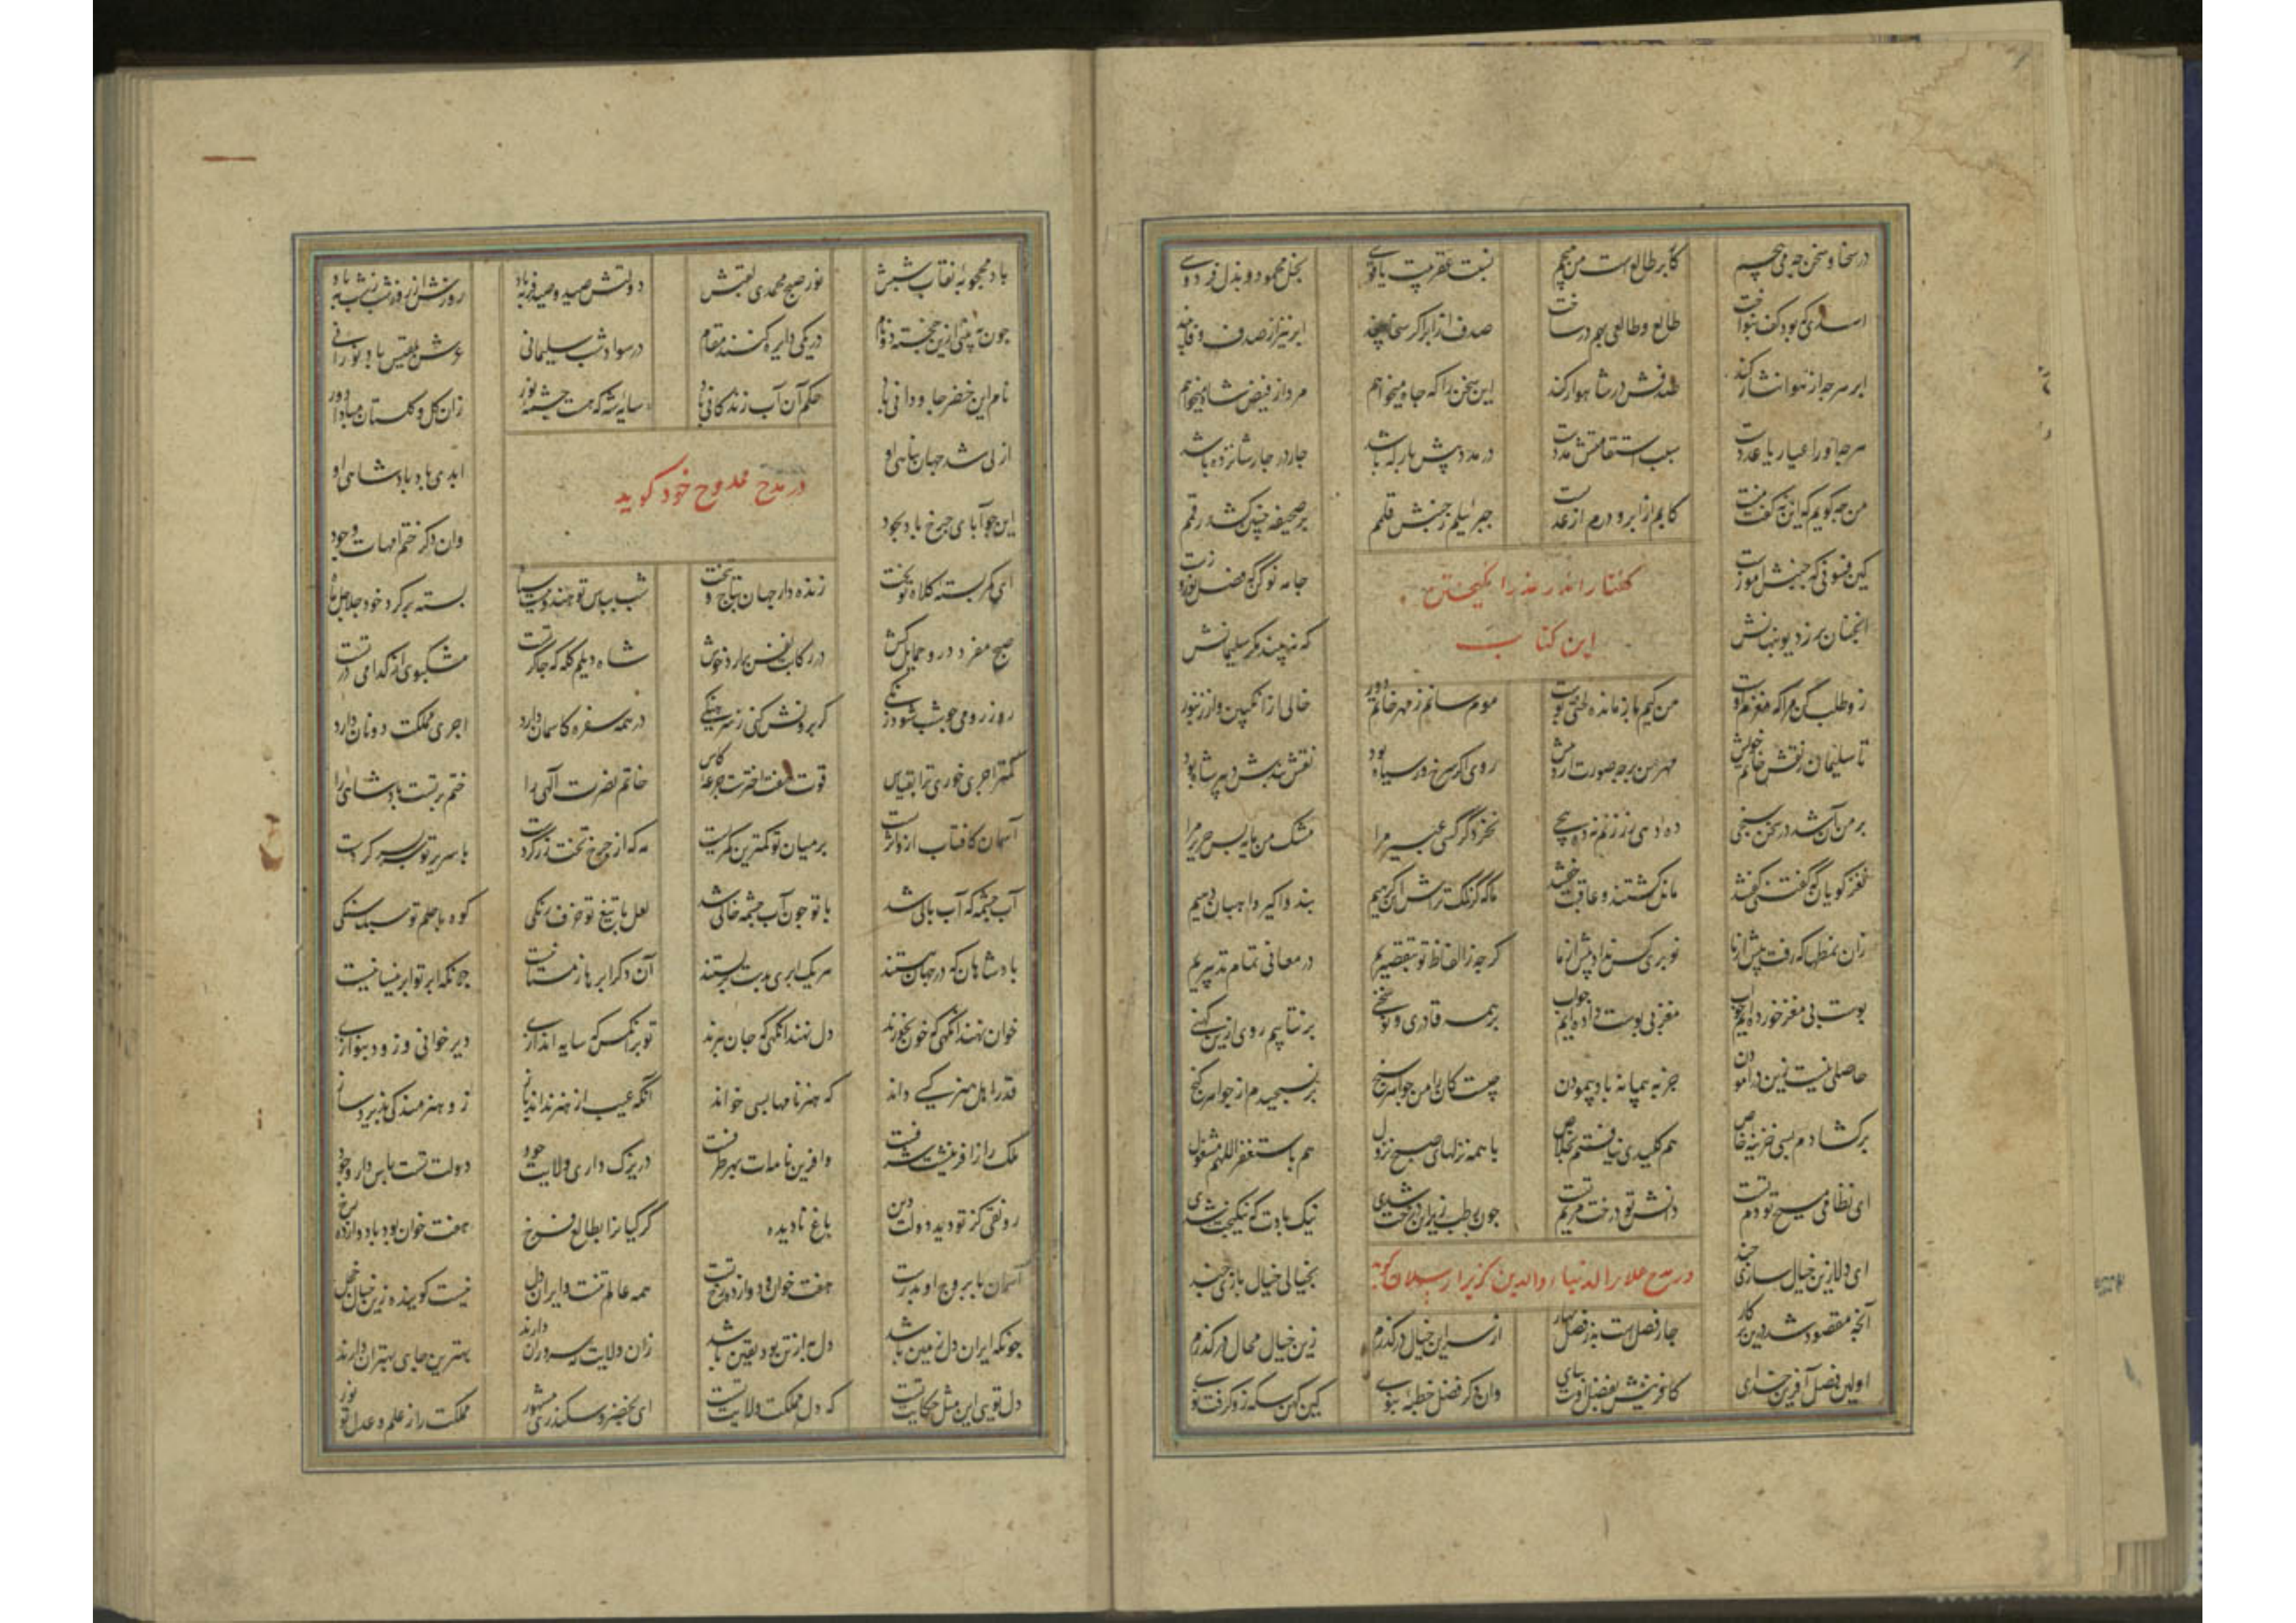 در سخا و سخن چه می پیچم کار بر طالع است من هیچم نسبت عقربیست با قوسی بخل محمود و بذل فردوسی
اسدی را که بودلف بنواخت طالع و طالعی بهم در ساخت صدف از ابر اگر سخا بیند ابر نیز از صدف وفا بیند
ابر هر چه از هوا نثار کند صدفش در شاهوار کند این سخن را که جاه میخواهم مدد از فیض شاه میخواهم
هر چه او را عیار یا عددست سبب استقامتش مددست در مدد پیش بارکه باشد چار در چار شانزده باشد
من چه گویم که این نه گفت منست کابم از ابر و درم از عدنست جبرئیلم ز جنبش قلمم بر صحیفه چنین کشد رقمم
کین فسونی که جنبش آموزست جامه نو کن که فصل نوروزست
گفتار اندر عذر انگیختن
آنچنان بر ز دیو پنهانش که نبیند مگر سلیمانش
این کتاب
زو طلب کن مرا که مغز من اوست من کیم باز مانده لختی پوست موم سانم ز مهر خاتم دور خالی از انگبین و از زنبور
تا سلیمان ز نقش خاتم خویش مهر من بر چه صورت آرد پیش روی اگر سرخ و گر سیاه بود نقش بندش دبیر شاه بود
بر من آن شد که در سخن سنجی ده دهی زر زنم نه ده پنجی نخرد گر کسی عبیر مرا مشک من مایه بس حریر مرا
نغز گویان که گفتنی گفتند مانده گشتند و عاقبت خفتند ما که گزلک تراش اکسیریم پند واگیر داهیان دبیریم
زان نمطها که رفت پیش از ما نوبری کس نداد پیش از ما گر چه ز الفاظ خود بتقصیریم در معانی تمام تدبیریم
پوست بی مغز خورده ایم چو آب مغز بی پوست داده ایم جواب بر همه قادری و نو سخنی بر نتابیم روی ازین کهنی
حاصلی نیست زین در آمودن جز بپیمانه باد پیمودن چیست کان را من جواهر سنج بر نسنجیدم از جواهر گنج
برگشادم بسی خزینه خاص هم کلیدی نیافتم بخلاص با همه نزلهای صبح نزول هم باستغفر اللهم مشغول
ای نظامی مسیح تو دم تست دانش تو درخت مریم تست چون رطب ریز این درخت شدی نیک بادت که نیکبخت شدی
ای دل ازین خیال سازی چند بخیالی خیال بازی چند
در مدح علاء الدنیا و الدین کرپه ارسلان گوید
آنچه مقصود شد درین پرگار چار فصل است به ز فصل بهار از سر این خیال درگذرم زین خیال محال درگذرم
اولین فصل آفرین خدای کافرینش بفضل اوست بپای وان دگر فصل خطبه نبوی کین کهن سکه زو گرفت نوی
باد محجوبه نقاب شبش نور صبح محمدی لقبش دولتش صید و صید فربه باد روزش از روز و شب ز شب به باد
چون به بینی ازین خجسته دو نام در یکی دایره کنند مقام در سواد شب سلیمانی عرش بلقیس باد نورانی
نام این خضر جاودانی باد حکم آن آب زندگانی باد سایه شه که هست چشمه نور زان گل و گلستان مبادا دور
ازلی شد جهان پناهی او ابدی باد پادشاهی او
در مدح ممدوح خود گوید
این چو آبای چرخ باد بجود وان دگر ختم امهات وجود
ای کمر بسته کلاه تو بخت زنده دار جهان بتاج و بتخت شب بپاس تو هندویست سیاه بسته بر گرد خود جلاجل ماه
صبح مفرد رو حمایل کش در رکابت نفس برآرد خوش شاه دیلم کله که چاکر تست مشکبویی از کدامی در تست
روز رومی چو شب شود زنگی گر برونش کنی ز سرهنگی در همه سفره کاسمان دارد اجری مملکت دو نان دارد
کمتر اجری خوری ترا بقیاس قوت هفت اخترست جرعه کاس خاتم نصرت الهی را ختم بر تست پادشاهی را
آسمان کافتاب ازو اثرست بر میان تو کمترین کمرست مه که از چرخ تخت زر کردست با سریر تو سر بسر کردست
آب چشمه که آب بالی شد با تو چون آب چشمه خاکی شد لعل با تیغ تو خزف رنگی کوه با حلم تو سبک سنگی
پادشاهان که در جهان هستند هر یک ابری بدست بر بستند آن دگر ابرها زمستانیست چونکه ابر تو ابر نیسانیست
خوان نهند آنگهی که خون بخورند دل نهند آنگهی که جان ببرند تو بر آنکس که سایه اندازی دیر خوانی و زود بنوازی
قدر اهل هنر کسی داند که هنر نامها بسی خواند آنکه عیب از هنر نداند باز زو هنرمند کی پذیرد ساز
ملک را ز آفرینشت شرفست وآفرین نامهات بهر طرفست در بزرگ داری ولایت جود دولت تست پاس دار وجود
رونقی کز تو دید دولت و دین باغ نادیده گر کیان را بطالع فرخ هفت خوان بود با دوازده رخ
آسمان با بروج او بدرست هفت خوان و دوازده رخ تست همه عالم تنست و ایران دل نیست گوینده زین خیال خجل
چونکه ایران دل زمین باشد دل ز تن به بود یقین باشد زان ولایت که سروران دارند بهترین جای بهتران دارند
دل تویی این مثل حکایت تست که دل مملکت ولایت تست ای بخضر و سکندری مشهور مملکت را ز علم و عدل تو نور